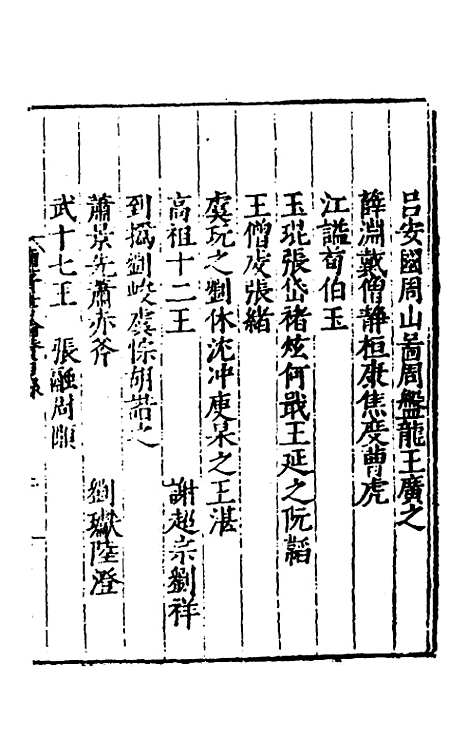 呂安國周山啚周盤龍王廣之
薛淵戴僧靜桓康焦度曹虎
江謐荀伯玉
王琨張岱褚炫何戢王延之阮韜
王僧虔張緒
虞玩之劉休沈沖庾杲之王湛
高祖十二王　謝超宗劉祥
到撝劉悛虞悰胡諧之
蕭景先蕭赤斧　劉瓛陸澄
武十七王　張融周顒
南齊書
目錄